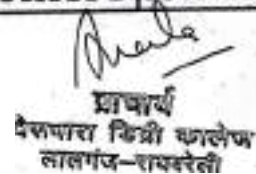 प्राचार्य
बैसवारा डिग्री कालेज
लालगंज–रायबरेली